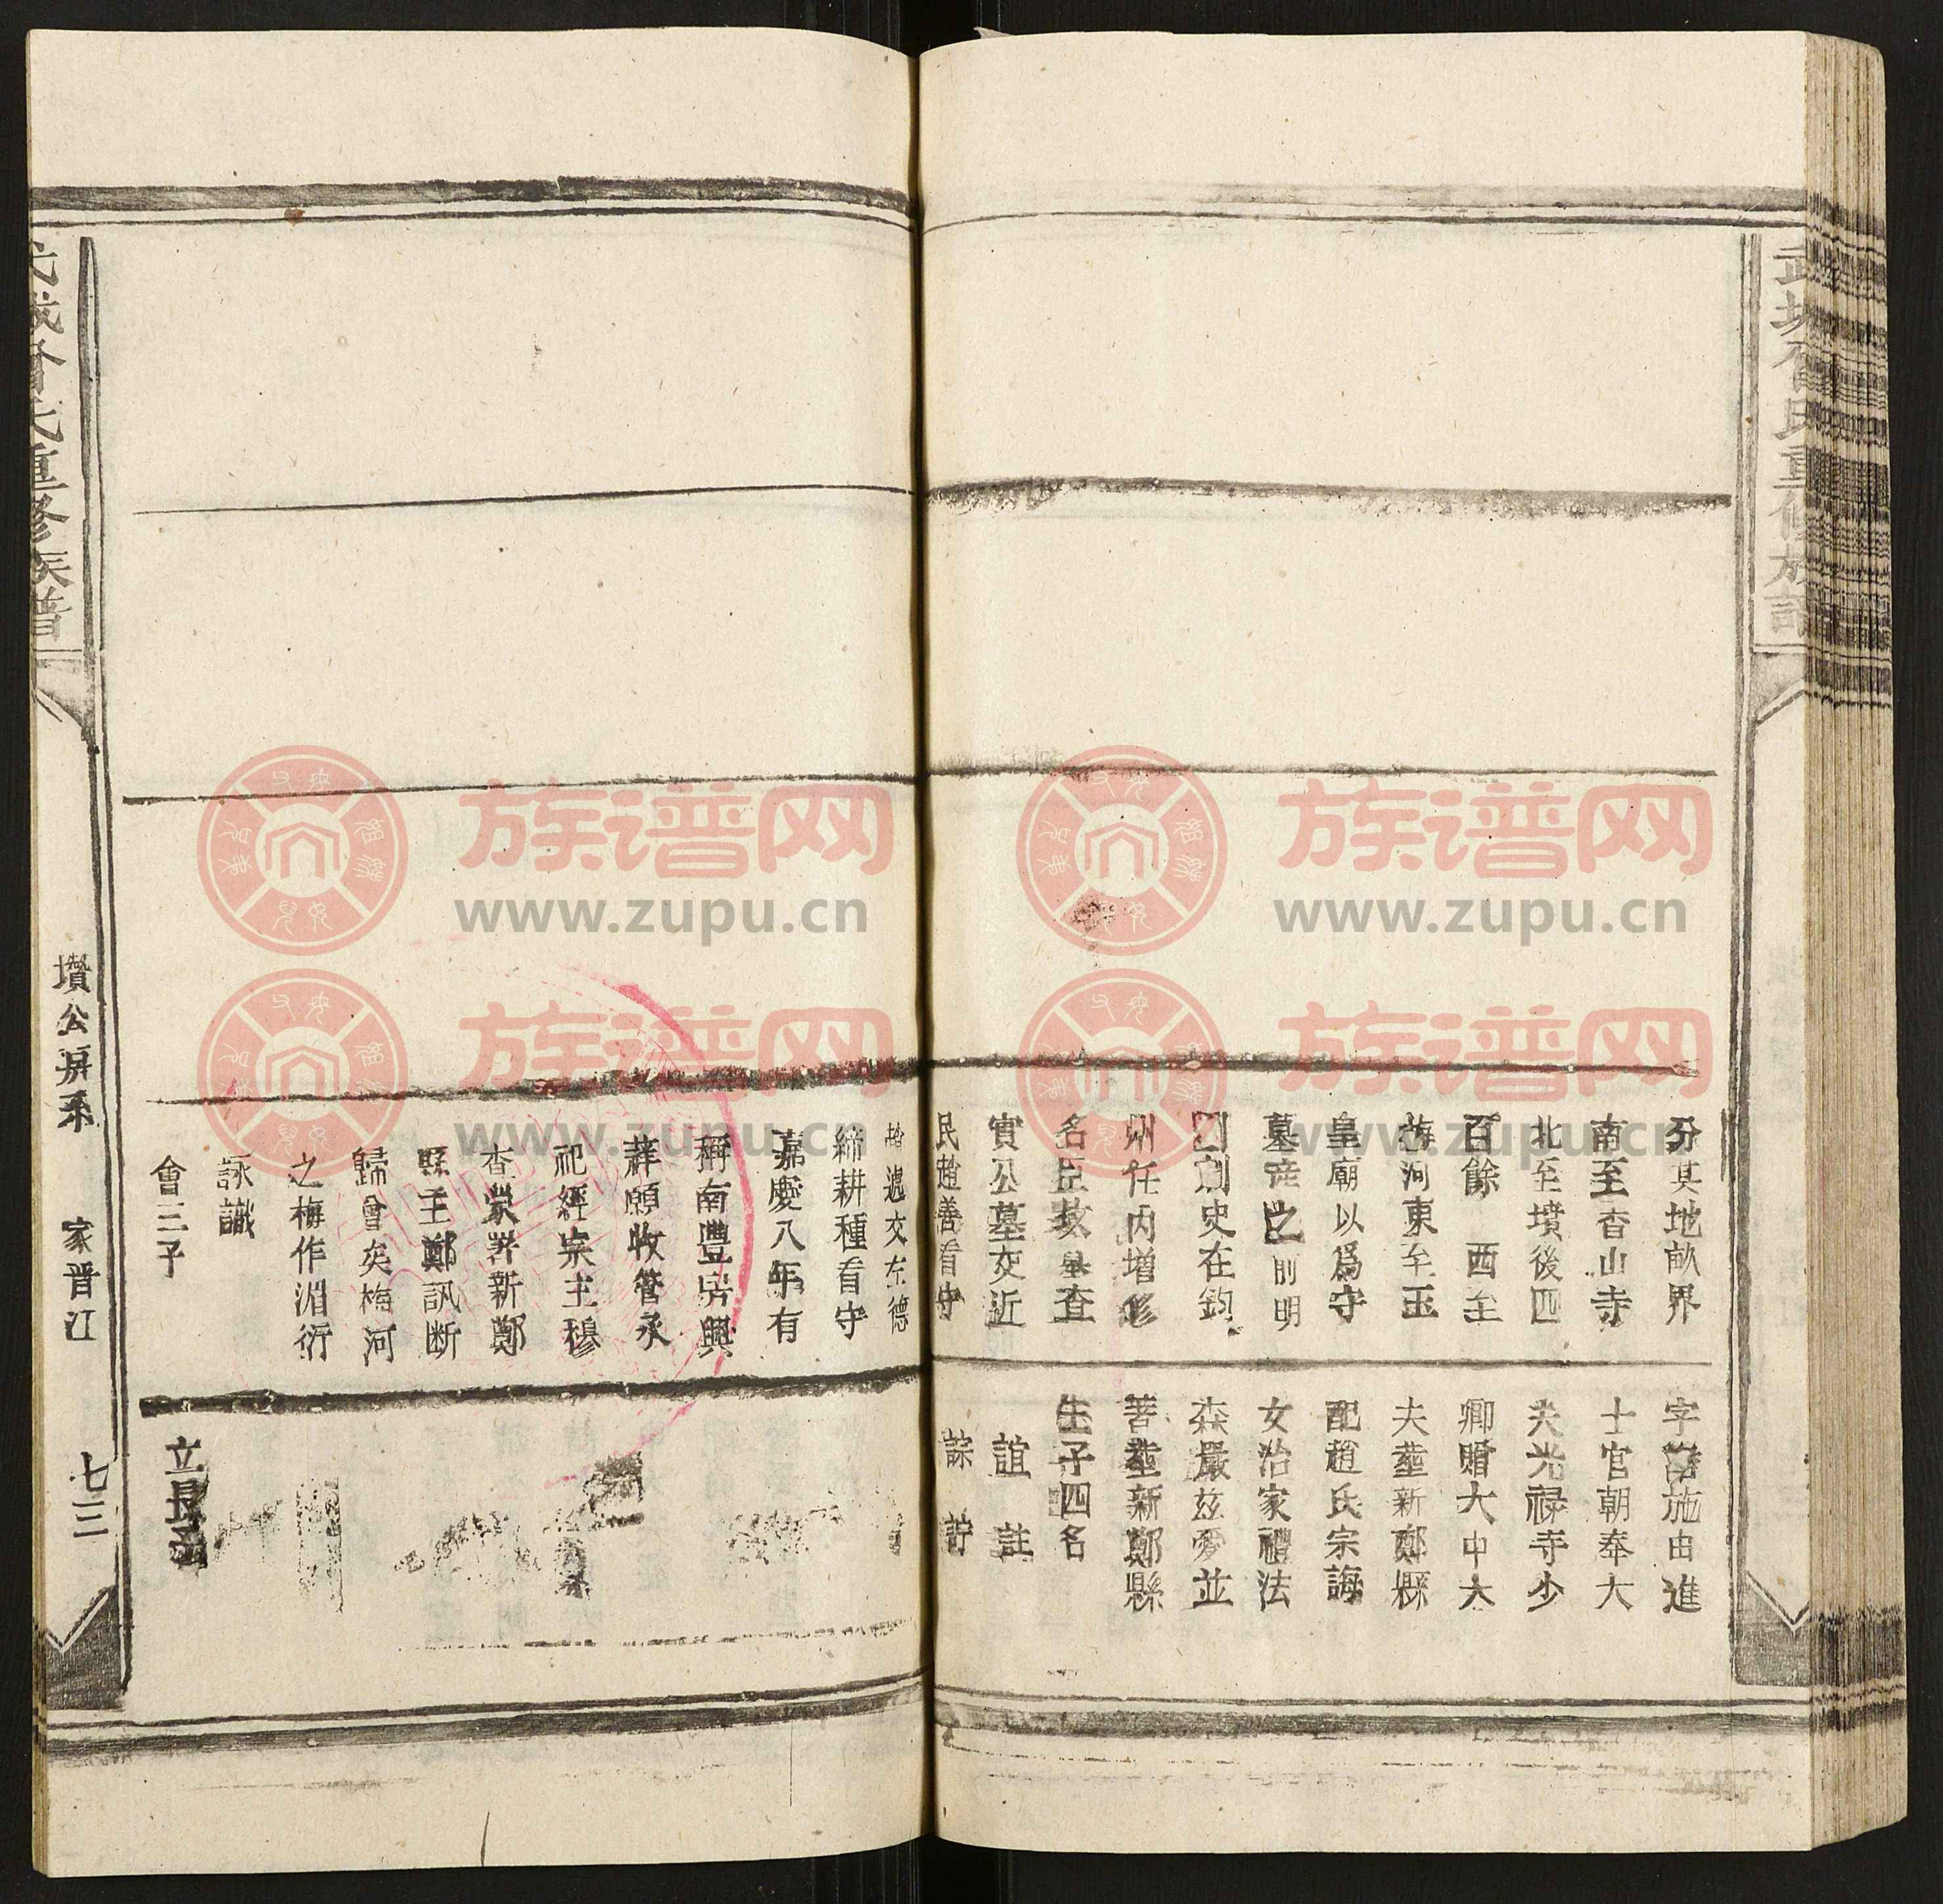 武城曾氏重修族譜
分其地畝界
南至杳山寺
北至墳後四
百餘 西至
梅河東至玉
皇廟以爲守
墓 之前明
史在鈞
州任内增修
名臣 墓查
實公墓交近
民趙善看守
字 施由進
士官朝奉大
夫光禄寺少
卿贈大中大
夫塟新鄭縣
配趙氏宗誨
女治家禮法
森嚴玆愛並
善塟新鄭縣
生子四名
誼 註
誴 詝
遞交左德
締耕種看守
嘉慶八年有
稱南豐居興
薛願收管承
祀經宗主穆
查蒙 新鄭
縣主鄭訊断
歸會矣梅河
之梅作湄衍
詠識
會三子
立長
武城曾氏重修族譜
墳公房系 家晋江 七三
族谱网
www.zupu.cn
族谱网
www.zupu.cn
族谱网
www.zupu.cn
族谱网
www.zupu.cn